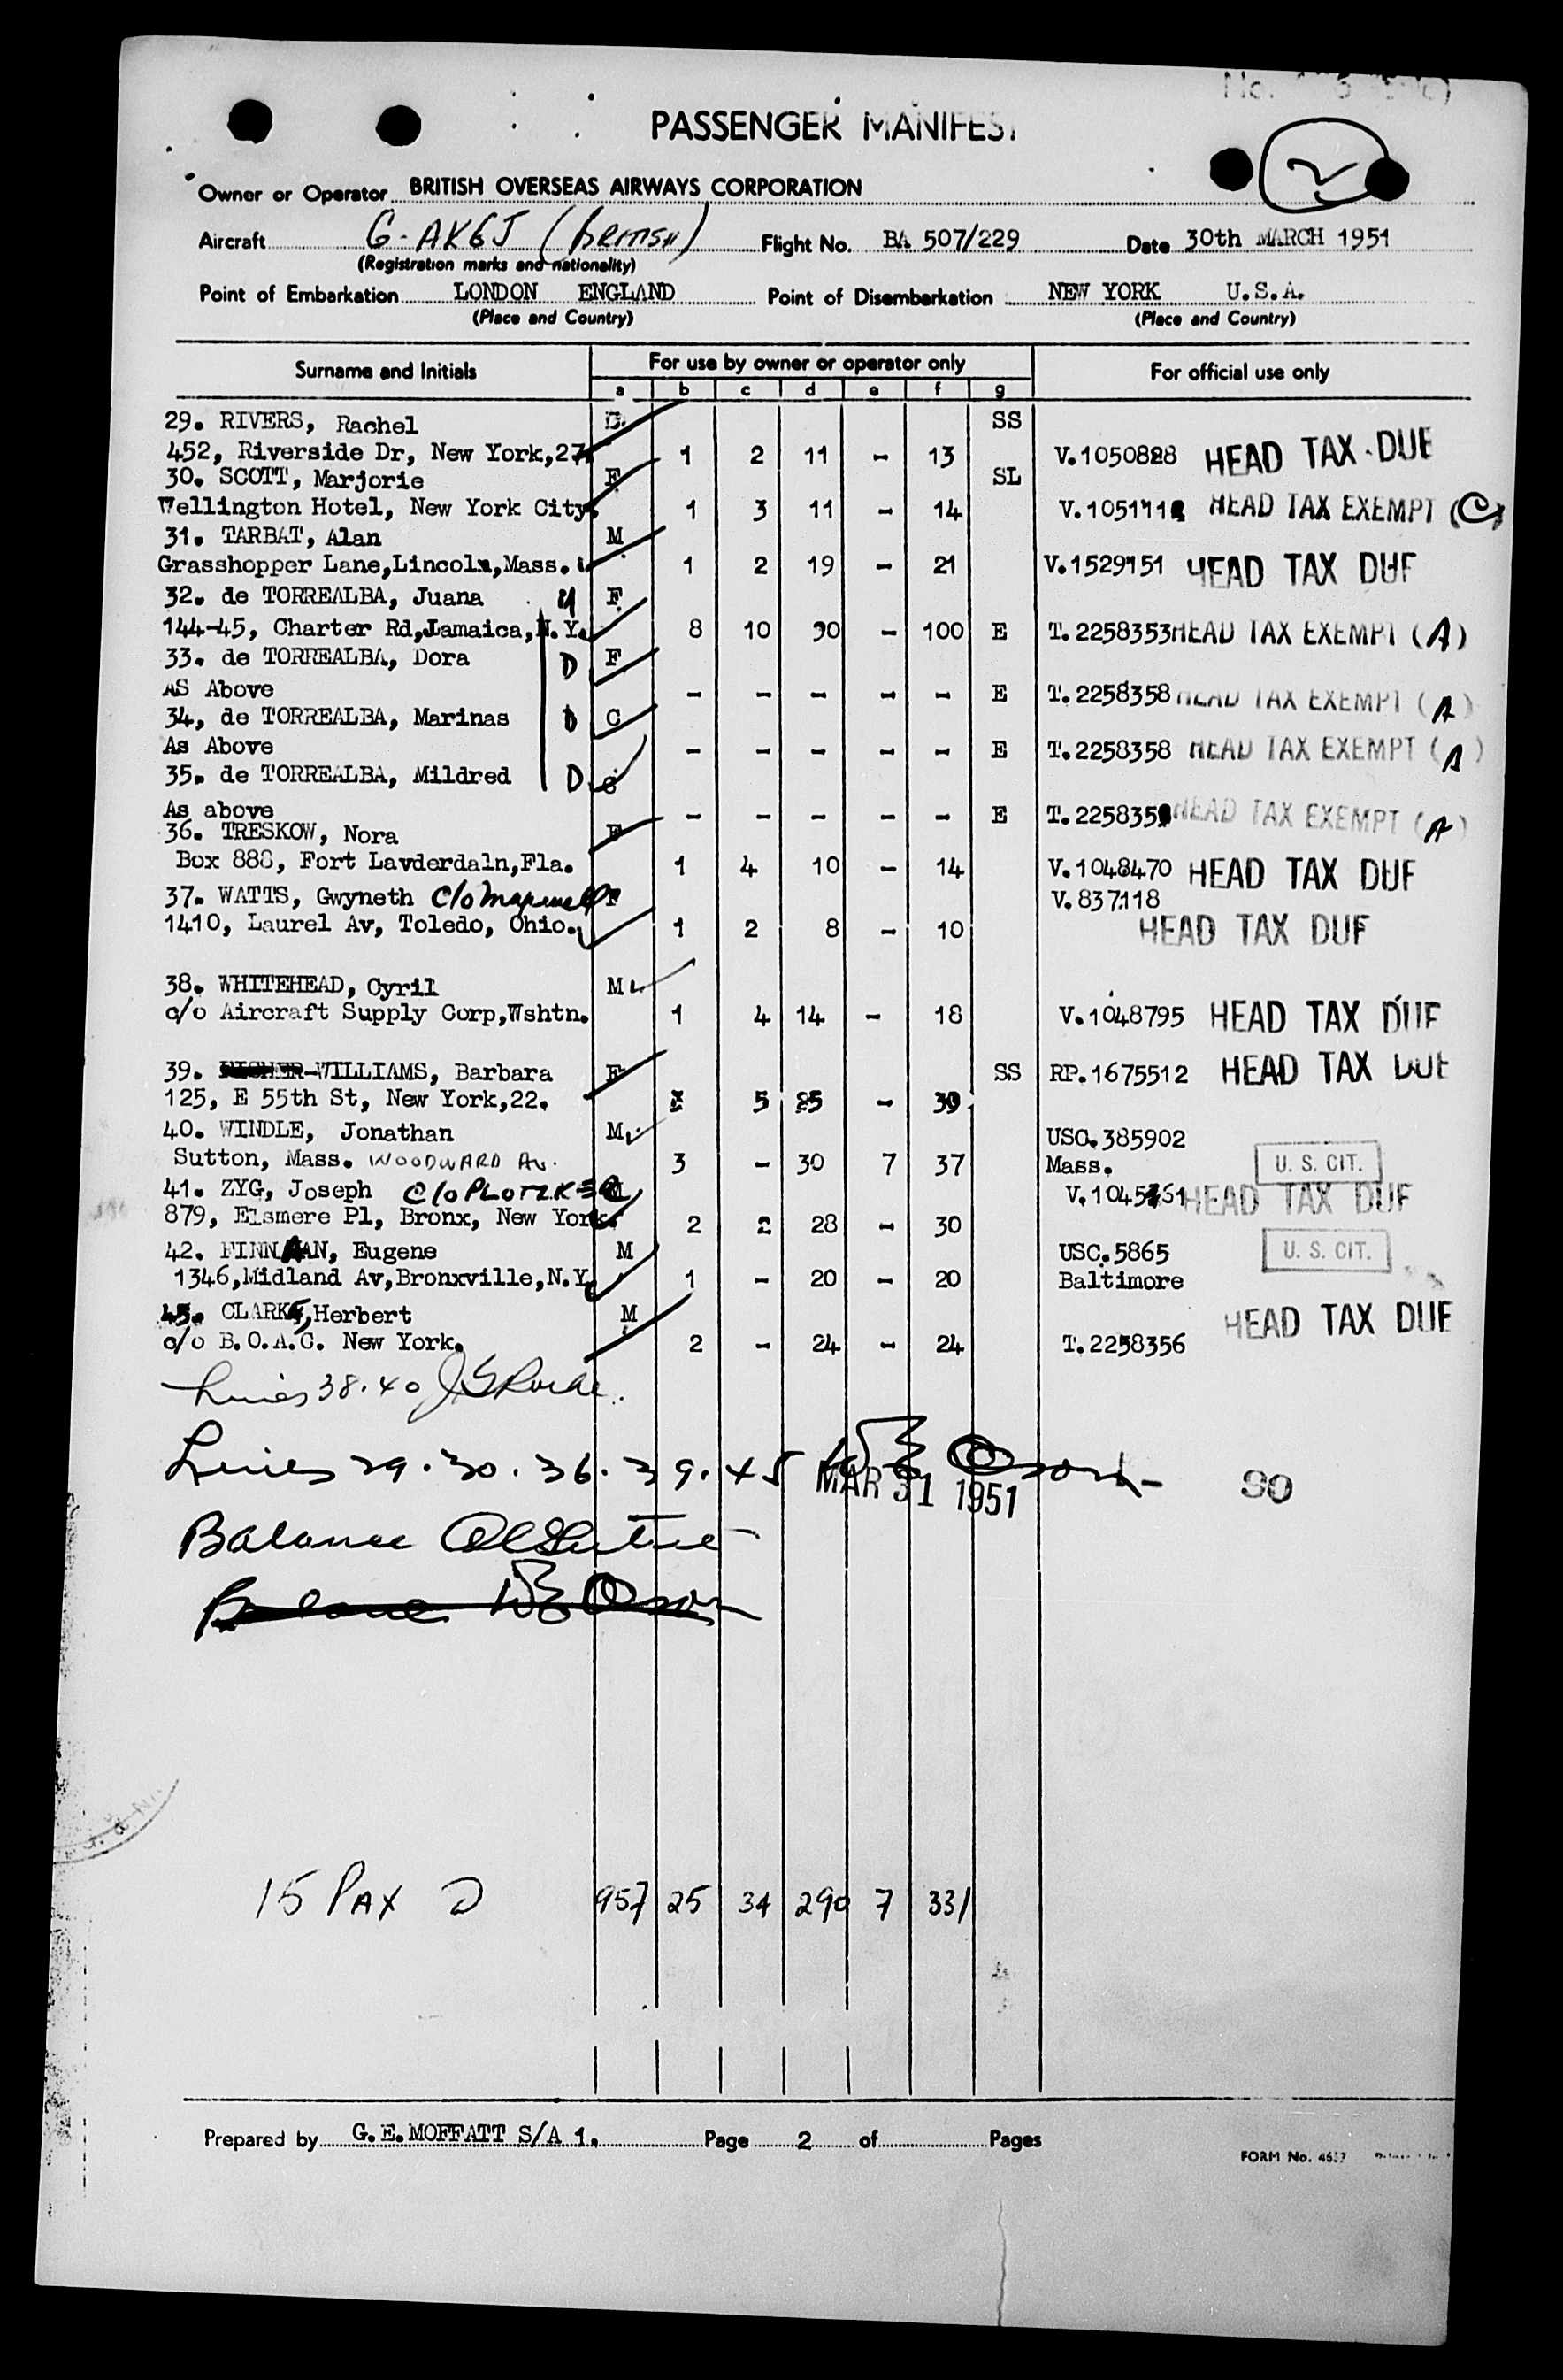 PASSENGER MANIFEST
Owner or Operator BRITISH OVERSEAS AIRWAYS CORPORATION
Aircraft G-AKGJ (BRITISH) Flight No. BA 507/229 Date 30th MARCH 1951
(Registration marks and nationality)
Point of Embarkation LONDON ENGLAND Point of Disembarkation NEW YORK U.S.A.
(Place and Country) (Place and Country)
Surname and Initials For use by owner or operator only For official use only
a b c d e f g
29. RIVERS, Rachel SS
452, Riverside Dr, New York,27. 1 2 11 - 13 V.1050828 HEAD TAX DUE
30. SCOTT, Marjorie F SL
Wellington Hotel, New York City. 1 3 11 - 14 HEAD TAX EXEMPT (C)
31. TARBAT, Alan M
Grasshopper Lane,Lincoln,Mass. 1 2 19 - 21 V.1529151 HEAD TAX DUE
32. de TORREALBA, Juana M F
144-45, Charter Rd,Jamaica,N.Y. 8 10 90 - 100 E T.2258353 HEAD TAX EXEMPT (A)
33. de TORREALBA, Dora D F
AS Above - - - - - E T.2258358 HEAD TAX EXEMPT (A)
34, de TORREALBA, Marinas D C
As Above - - - - - E T.2258358 HEAD TAX EXEMPT (A)
35. de TORREALBA, Mildred D C
As above - - - - - E HEAD TAX EXEMPT (A)
36. TRESKOW, Nora F
Box 888, Fort Lavderdaln,Fla. 1 4 10 - 14 V.1048470 HEAD TAX DUE
37. WATTS, Gwyneth c/o F V.837118
1410, Laurel Av, Toledo, Ohio. 1 2 8 - 10 HEAD TAX DUE
38. WHITEHEAD, Cyril M
c/o Aircraft Supply Corp,Wshtn. 1 4 14 - 18 V.1048795 HEAD TAX DUE
39. WILLIAMS, Barbara F SS RP.1675512 HEAD TAX DUE
125, E 55th St, New York,22. 5 - 
40. WINDLE, Jonathan M USC.385902
Sutton, Mass. WOODWARD AV. 3 - 30 7 37 Mass. U. S. CIT.
41. ZYG, Joseph c/o M HEAD TAX DUE
879, Elsmere Pl, Bronx, New York. 2 2 28 - 30
42. FINNAN, Eugene M USC.5865 U. S. CIT.
1346,Midland Av,Bronxville,N.Y. 1 - 20 - 20 Baltimore
45. CLARKE, Herbert M HEAD TAX DUE
c/o B.O.A.C. New York. 2 - 24 - 24 T.2258356
Lines 38.40
Lines 29.30.36.39.45
MAR 31 1951 90
Balance
15 PAX 957 25 34 290 7 331
Prepared by G.E.MOFFATT S/A 1. Page 2 of Pages
FORM No.